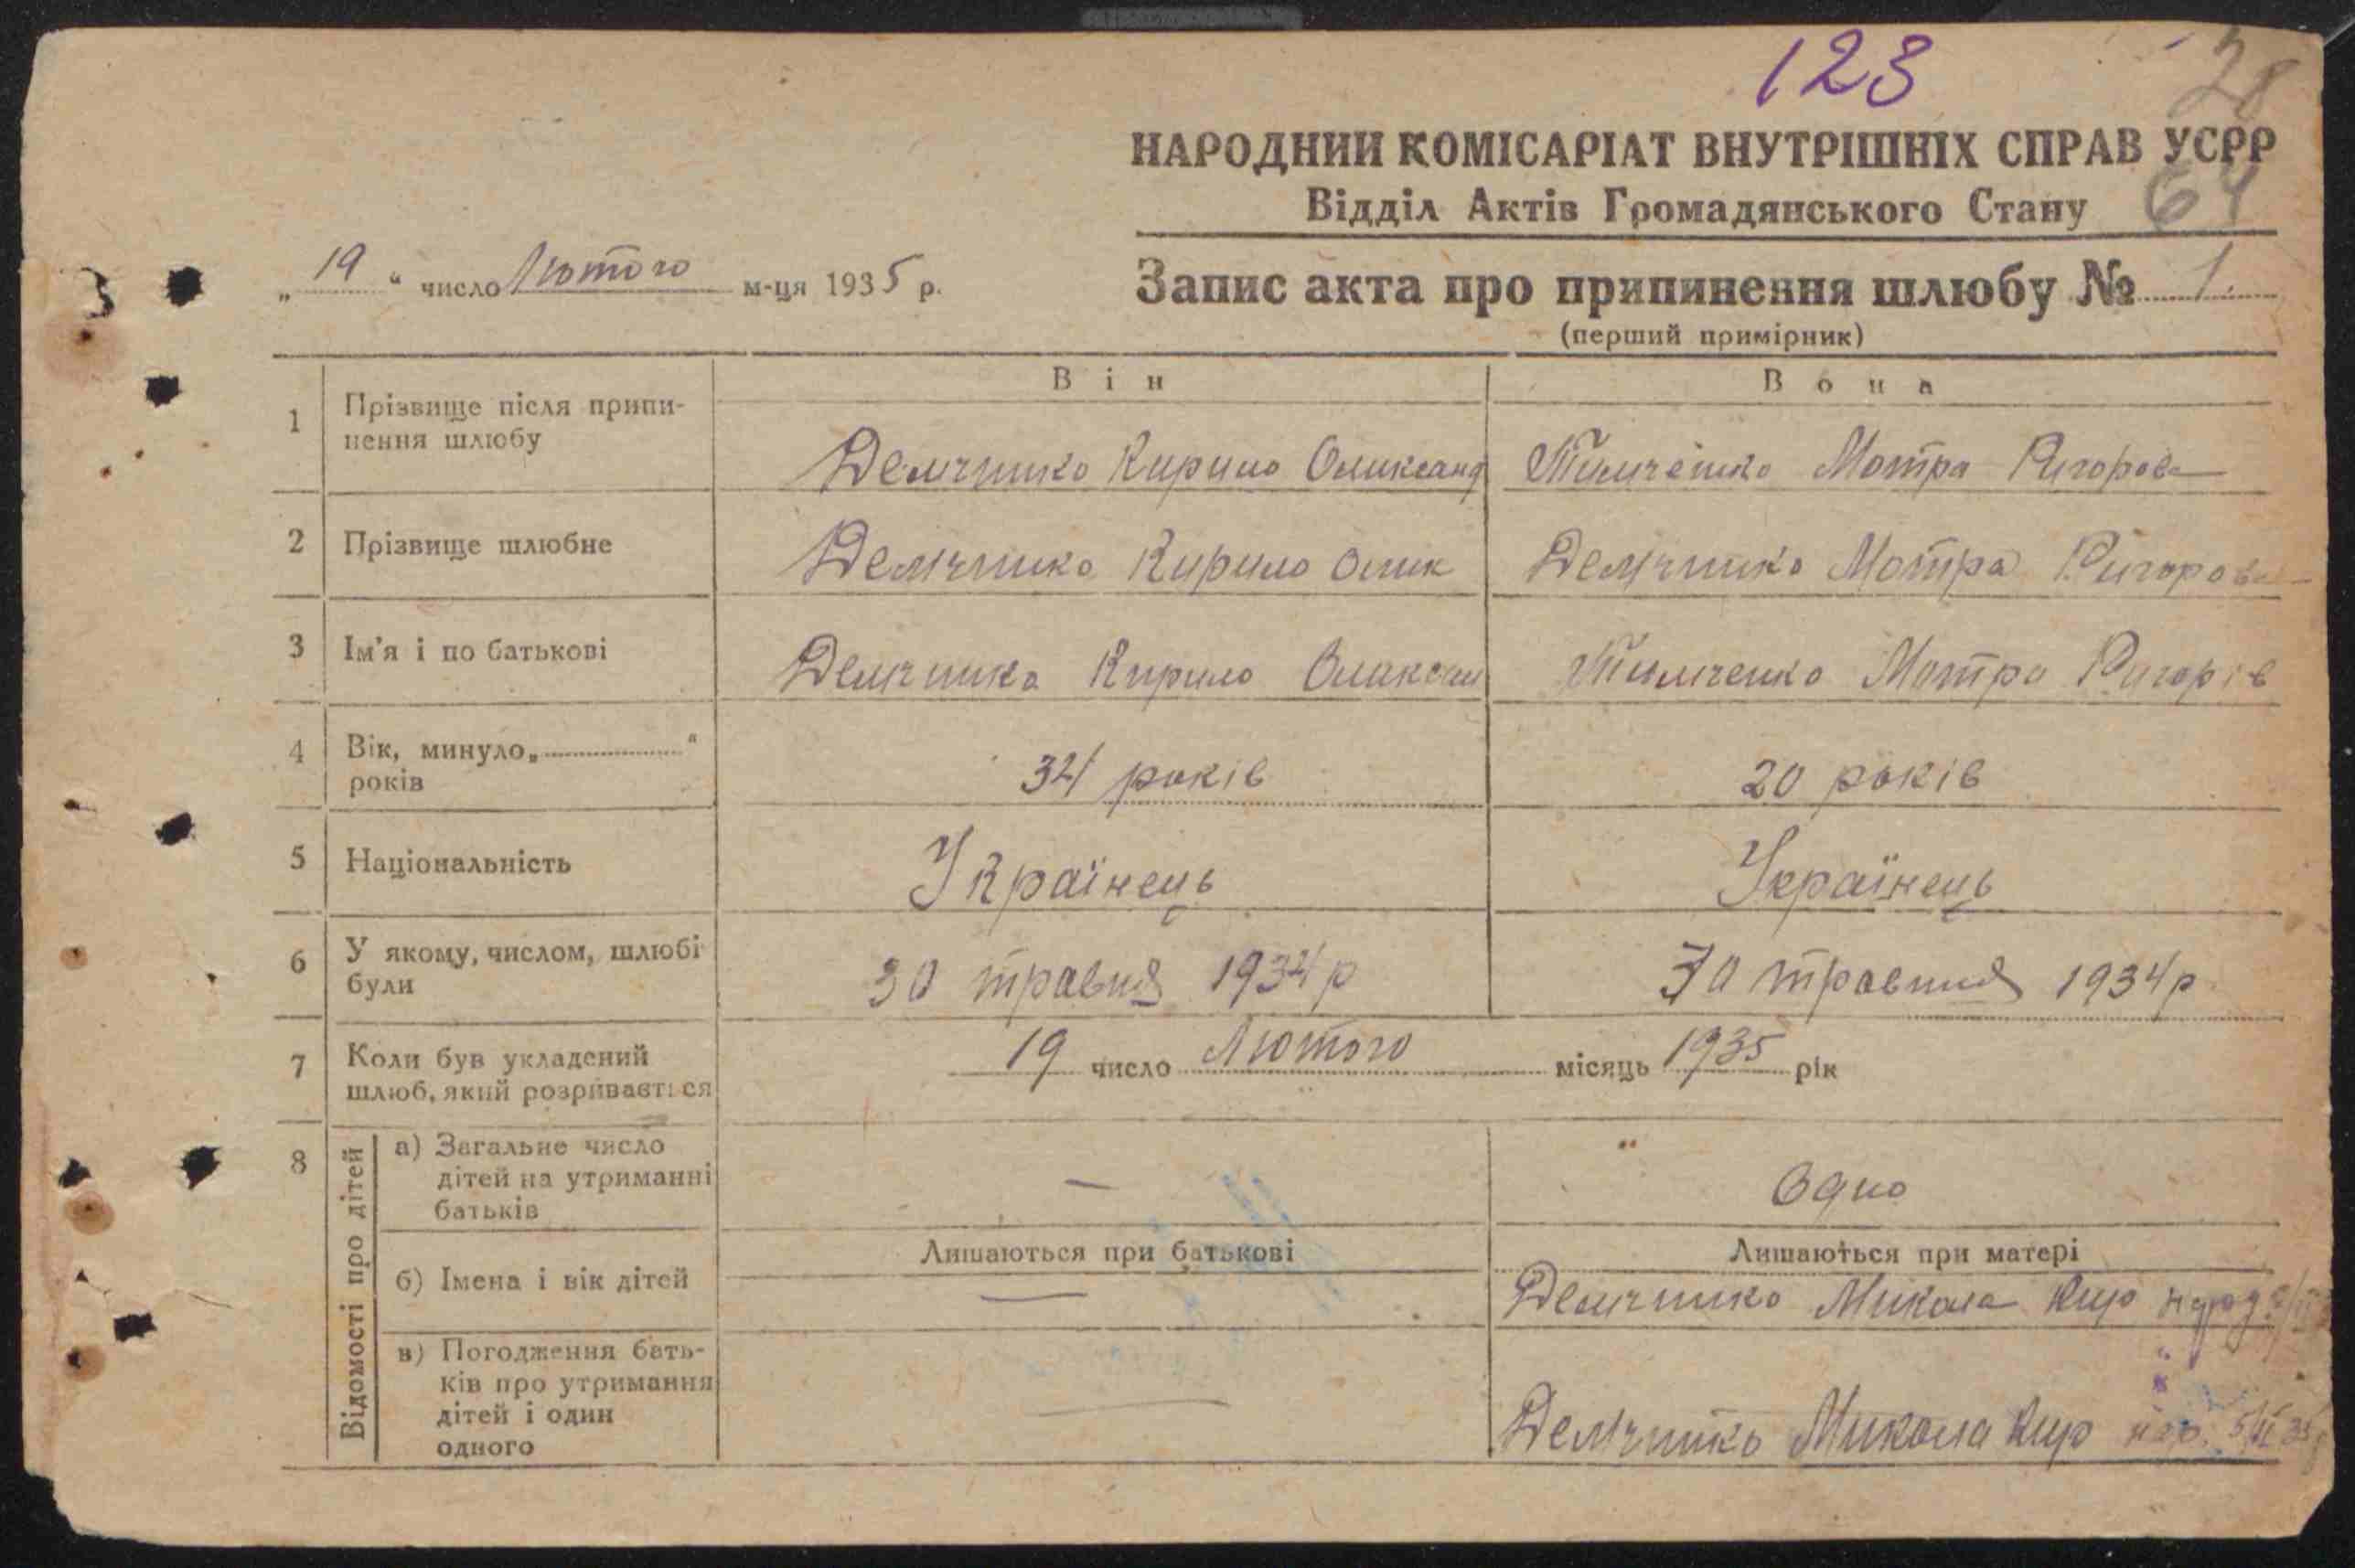 123
28
НАРОДНИЙ КОМІСАРІАТ ВНУТРІШНІХ СПРАВ УСРР
Відділ Актів Громадянського Стану
64
„19“ число Лютого м-ця 1935 р.
Запис акта про припинення шлюбу № 1.
(перший примірник)
Він Вона
1 Прізвище після припи-
нення шлюбу
Демченко Кирило Олександ Тимченко Мотра Ригорова
2 Прізвище шлюбне Демченко Кирило Олик Демченко Мотра Ригорова
3 Ім'я і по батькові Демченко Кирило Олексан Тимченко Мотра Ригорів
4 Вік, минуло „ “
років
34 років 20 років
5 Національність Українець Українець
6 У якому, числом, шлюбі
були
30 травня 1934 р 30 травня 1934 р
7 Коли був укладений
шлюб, який розривається
19 число Лютого місяць 1935 рік
8 Відомості про дітей
а) Загальне число
дітей на утриманні
батьків
— Одно
Лишаються при батькові Лишаються при матері
б) Імена і вік дітей — Демченко Микола Кир
в) Погодження бать-
ків про утримання
дітей і один
одного
— Демченко Микола Кир нар. 5/II 35